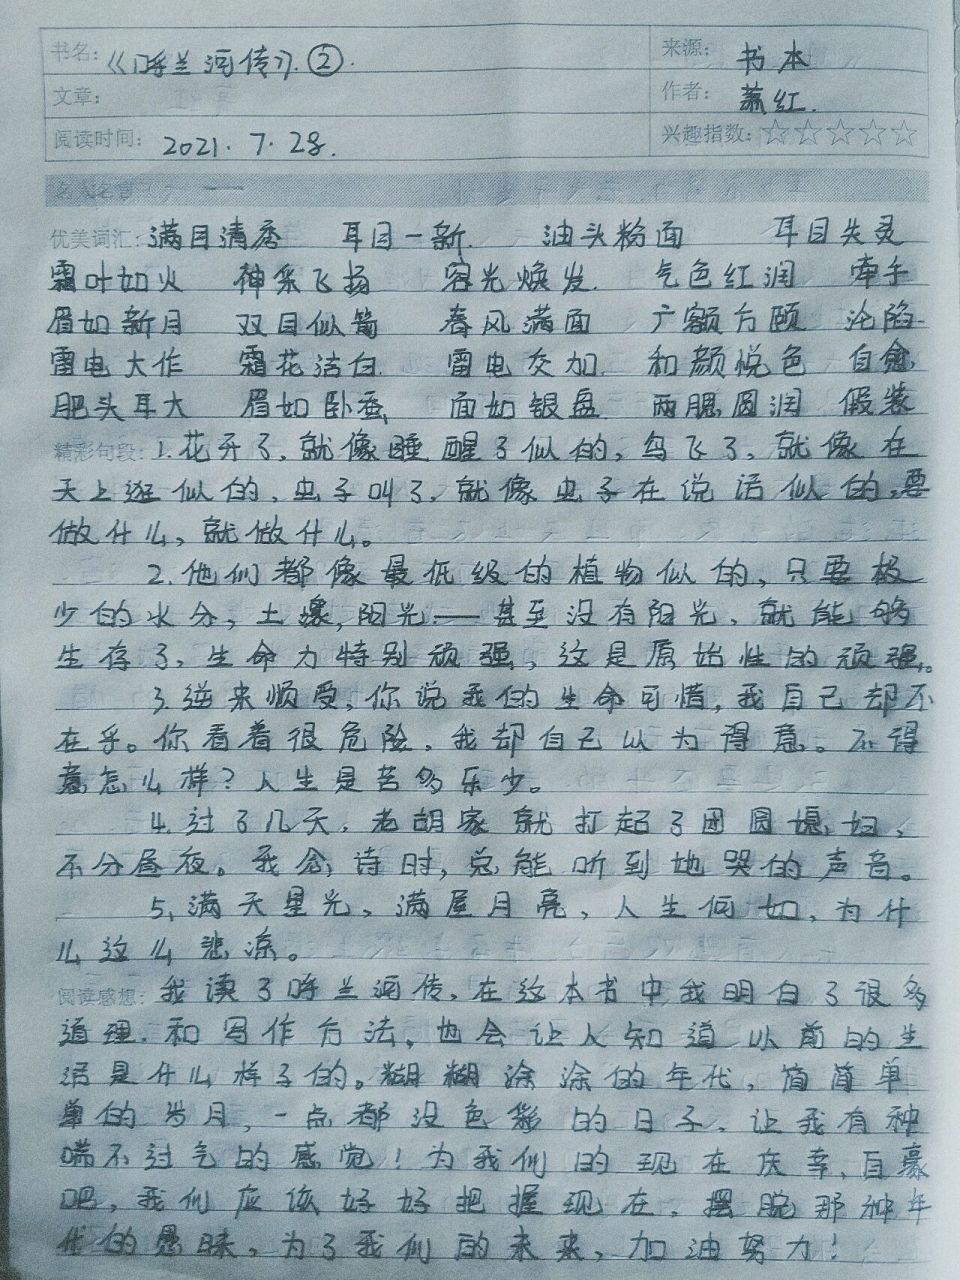 书名：《呼兰河传》②.
来源： 书本
文章：
作者： 萧红.
阅读时间： 2021.7.28.
兴趣指数：☆☆☆☆☆
名人名言
优美词汇：满目清秀 耳目一新. 油头粉面 耳目失灵
霜叶如火 神采飞扬 容光焕发. 气色红润 牵手
眉如新月 双目似箭 春风满面 广额方颐 沦陷.
雷电大作 霜花洁白. 雷电交加. 和颜悦色 自愈
肥头耳大 眉如卧蚕 面如银盘 两腮圆润 假装
精彩句段：1.花开了，就像睡醒了似的，鸟飞了，就像在
天上逛似的，虫子叫了，就像虫子在说话似的，要
做什么，就做什么。
2.他们都像最低级的植物似的，只要极
少的水分，土壤，阳光——甚至没有阳光，就能够
生存了，生命力特别顽强，这是原始性的顽强。
3.逆来顺受，你说我的生命可惜，我自己却不
在乎。你看着很危险，我却自己以为得意。不得
意怎么样？人生是苦多乐少。
4.过了几天，老胡家就打起了团圆媳妇，
不分昼夜。我念诗时，总能听到她哭的声音。
5、满天星光，满屋月亮，人生何如，为什
么这么悲凉。
阅读感想：我读了呼兰河传，在这本书中我明白了很多
道理.和写作方法，也会让人知道以前的生
活是什么样子的。糊糊涂涂的年代，简简单
单的岁月，一点都没色彩的日子，让我有种
喘不过气的感觉！为我们的现在庆幸，自豪
吧，我们应该好好把握现在，摆脱那种年
代的愚昧，为了我们的未来，加油努力！